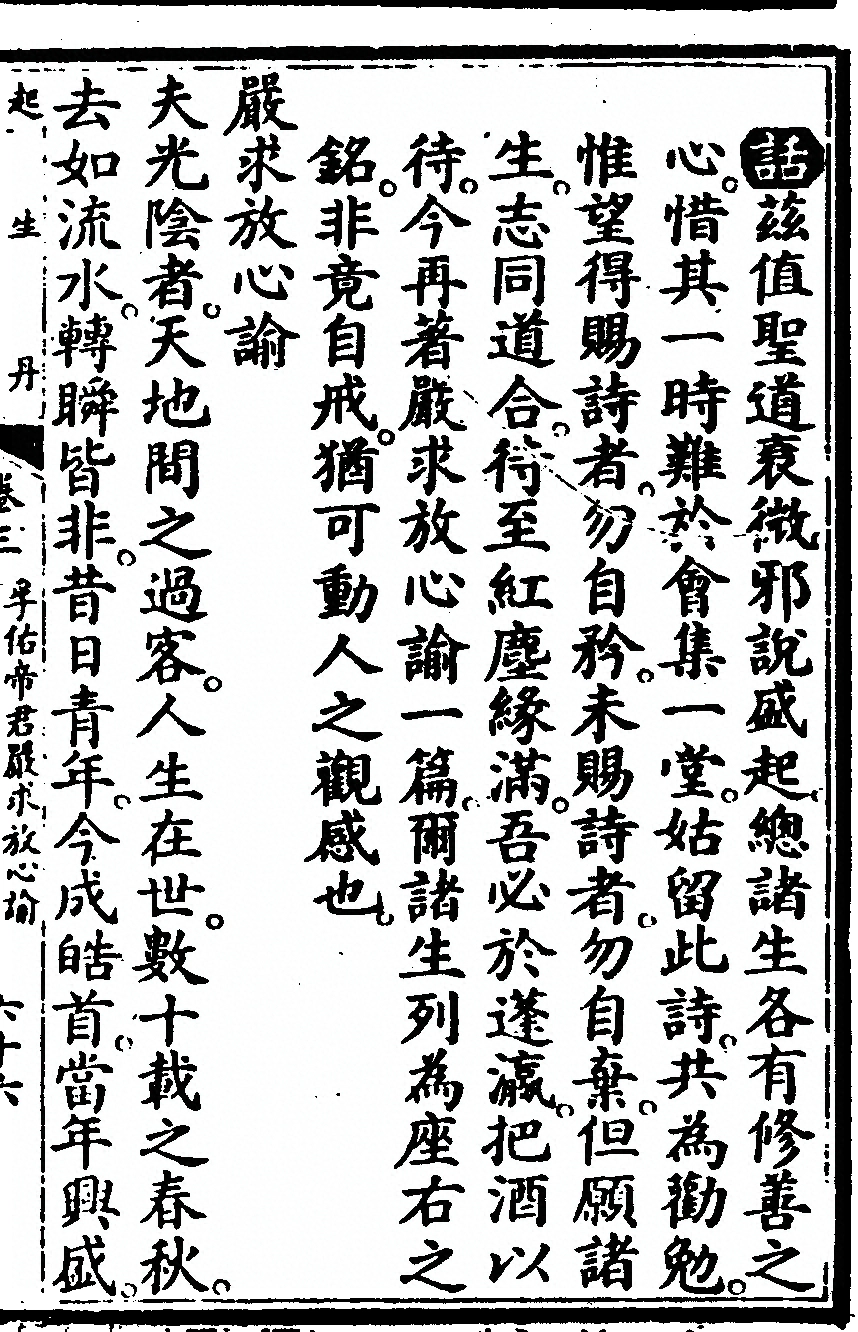 話茲值聖道衰微邪說盛起總諸生各有修善之
心。惜其一時難於會集一堂。姑留此詩。共為勸勉。
惟望得賜詩者。勿自矜。未賜詩者。勿自棄。但願諸
生。志同道合。待至紅塵緣滿。吾必於蓬瀛。把酒以
待。今再著嚴求放心諭一篇。爾諸生列為座右之
銘。非竟自戒。猶可動人之觀感也。
嚴求放心諭
夫光陰者。天地間之過客。人生在世。數十載之春秋。
去如流水。轉瞬皆非。昔日青年。今成皓首。當年興盛。
起生丹 卷三 孚佑帝君嚴求放心諭 六十六